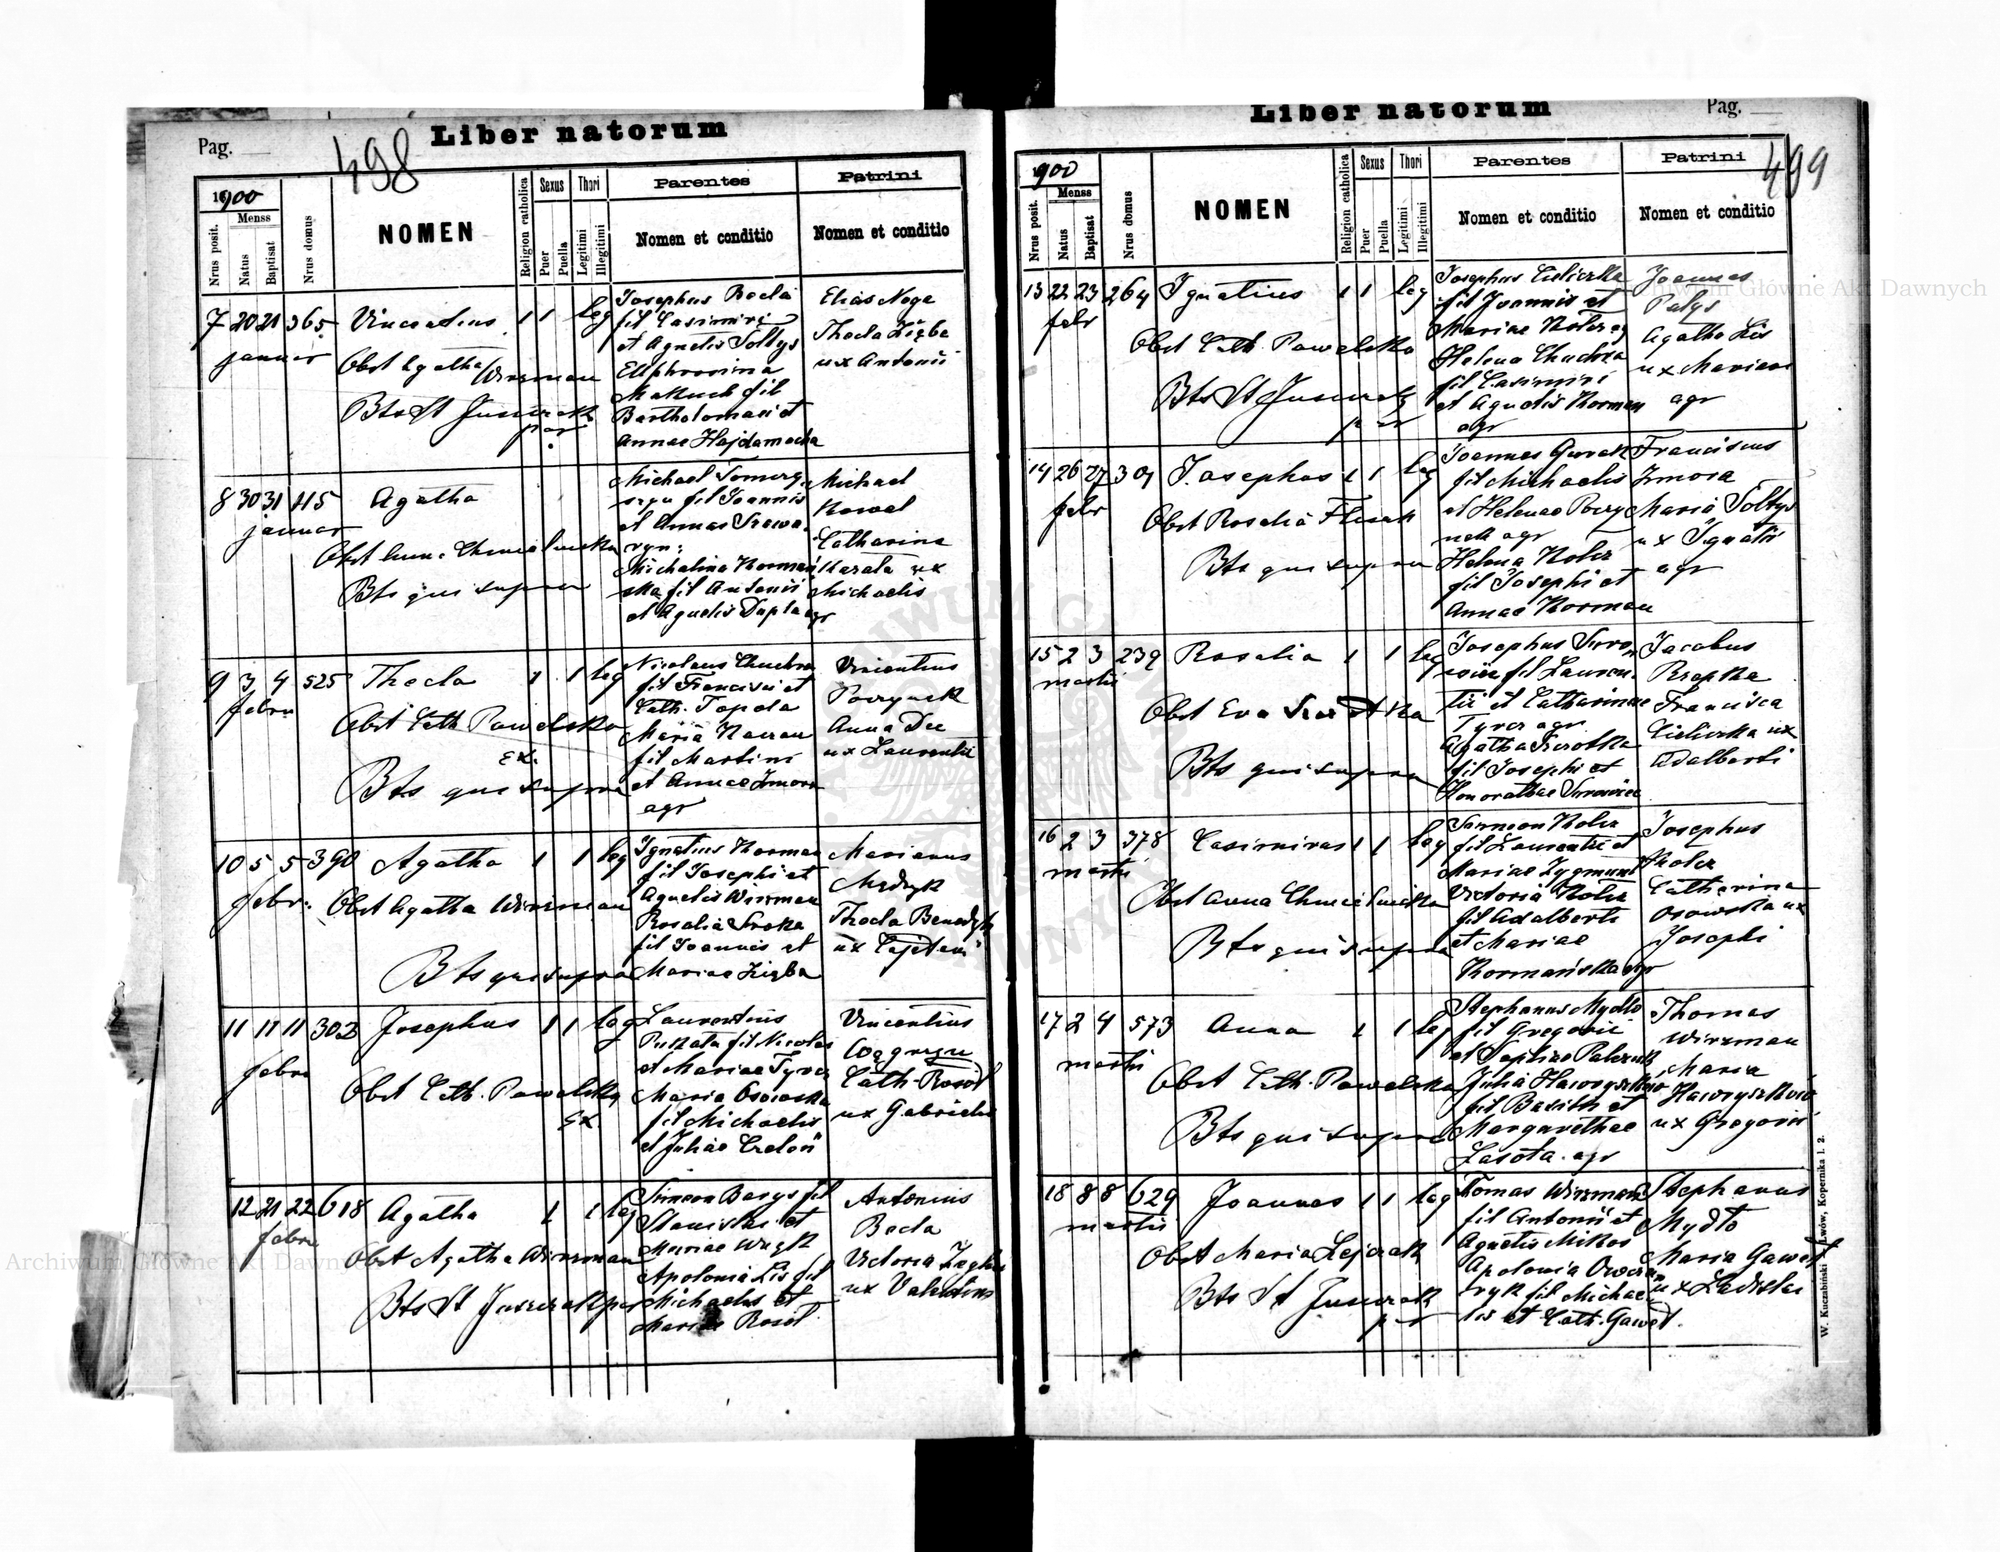 Pag.
498
Liber natorum
1900
Nrus posit.
Menss
Natus
Baptisat
Nrus domus
NOMEN
Religion catholica
Sexus
Puer
Puella
Thori
Legitimi
Illegitimi
Parentes
Nomen et conditio
Patrini
Nomen et conditio
7 20 21 365 Vincentius 1 1 leg
januar
Obst Agatha Wirzman
Bts St Juszczak
par
Josephus Becla
fil Casimiri
et Agnetis Sołtys
Euphrosina
Makuch fil
Bartholomaei et
Annae Hajdamacha
Elias Noga
Thecla Zięba
ux Antonii
8 30 31 115 Agatha
januar
Obst Anna Chmielnicka
Bts qui supra
Michael
fil Joannis
et Annae
Michalina
fil Antonii
et Agnetis Dupla agr
Michael
Kowal
Catharina
Karata ux
Michaelis
9 3 4 525 Thecla 1 1 leg
febru
Obst Cath Pawelska
ex.
Bts qui supra
Nicolaus
fil Francisci et
Cath. Topola
Maria
fil Martini
et Annae Zmora
agr
Vincentius
Powrynek
Anna Dec
ux Laurentii
10 5 5 390 Agatha 1 1 leg
febr.
Obst Agatha Wirzman
Bts qui supra
Ignatius Korman
fil Josephi et
Agnetis Wirzman
Rosalia Sroka
fil Joannis et
Mariae Zięba
Marianus
Mędryk
Thecla Benedyk
ux Cajetani
11 11 11 303 Josephus 1 1 leg
febru
Obst Cath. Pawelska
ex
Laurentius
Puszata fil Nicolai
et Mariae Tyrcz
Maria Osowska
fil Michaelis
et Juliae
Vincentius
Cath. Rosół
ux Gabrielis
12 21 22 618 Agatha 1 1 leg
febru
Obst Agatha Wirzman
Bts St Juszczak par
Simeon Barys fil
Stanislai et
Mariae
Apolonia Lis fil
Michaelis et
Mariae Rosół.
Antonius
Becla
Victoria
ux Valentini
Liber natorum
Pag.
499
1900
Nrus posit.
Menss
Natus
Baptisat
Nrus domus
NOMEN
Religion catholica
Sexus
Puer
Puella
Thori
Legitimi
Illegitimi
Parentes
Nomen et conditio
Patrini
Nomen et conditio
13 22 23 264 Ignatius 1 1 leg
febr
Obst Cath. Pawelska
Bts St Juszczak
par
Josephus Cieliczka
fil Joannis et
Mariae Kołcz agr
Helena
fil Casimiri
et Agnetis Korman
agr
Joannes
Patys
Agatha Lis
ux Mariani
agr
14 26 27 301 Josephus 1 1 leg
febr
Obst Rosalia
Bts qui supra
Joannes
fil Michaelis
et Helenae Powry
nek agr
Helena Kołcz
fil Josephi et
Annae Korman
Franciscus
Zmora
Maria Sołtys
ux Ignatii
agr
15 2 3 239 Rosalia 1 1 leg
martii
Obst Eva
Bts qui supra
Josephus Suro
wiec fil Lauren
tii et Catharinae
Tyrcz agr
Agatha
fil Josephi et
Honorathae Surowiec
Jacobus
Rzepka
Francisca
Cieliczka ux
Adalberti
16 2 3 378 Casimirus 1 1 leg
martii
Obst Anna Chmielnicka
Bts qui supra
Simeon Kołcz
fil Laurentii et
Mariae Zygmunt
Victoria Kołcz
fil Adalberti
et Mariae
Kormańska agr
Josephus
Kołcz
Catharina
Osowska ux
Josephi
17 2 4 573 Anna 1 1 leg
martii
Obst Cath. Pawelska
Bts qui supra
Stephanus Mydło
fil Gregorii
et Sophiae
Julia Hawryszków
fil Basilii et
Margarethae
Lasota. agr
Thomas
Wirzman
Maria
Hawryszków
ux Gregorii
18 8 8 629 Joannes 1 1 leg
martii
Obst Maria Lejczak
Bts St Juszczak
par
Tomas Wirzman
fil Antonii et
Agnetis Mikos
Apolonia Owcza
ryk fil Michae
lis et Cath. Gaweł.
Stephanus
Mydło
Maria Gaweł
ux Ladislai
W. Kuczabiński Lwów, Kopernika 1. 2.
Archiwum Główne Akt Dawnych
Archiwum Główne Akt Dawnych